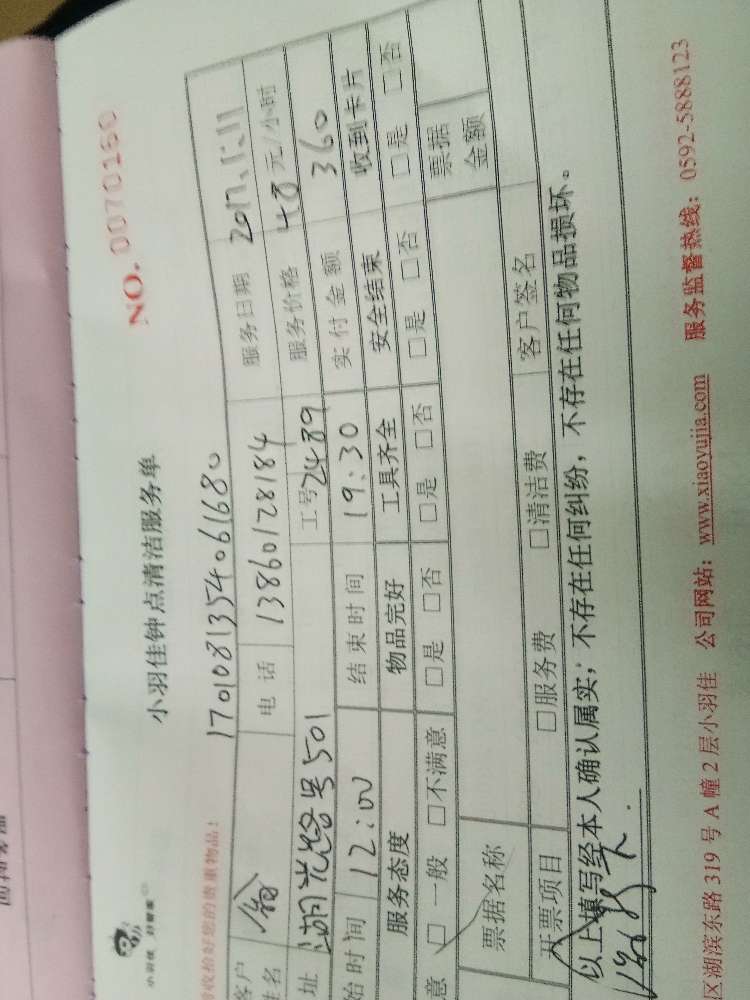 NO. 0070160
小羽佳钟点清洁服务单
小羽佳 好管家
收拾好您的贵重物品！
1701081354061680
客户姓名 翁 电话 13860128184 服务日期 2017.1.11
址 湖光路 号501 工号 2489 服务价格 48元/小时
始时间 12:00 结束时间 19:30 实付金额 360
服务态度 物品完好 工具齐全 安全结束 收到卡片
意 □一般 □不满意 □是 □否 □是 □否 □是 □否 □是 □否
票据名称 票据金额
开票项目 □服务费 □清洁费 客户签名
以上填写经本人确认属实，不存在任何纠纷，不存在任何物品损坏。
区湖滨东路319号A幢2层小羽佳 公司网站：www.xiaoyujia.com 服务监督热线：0592-5888123